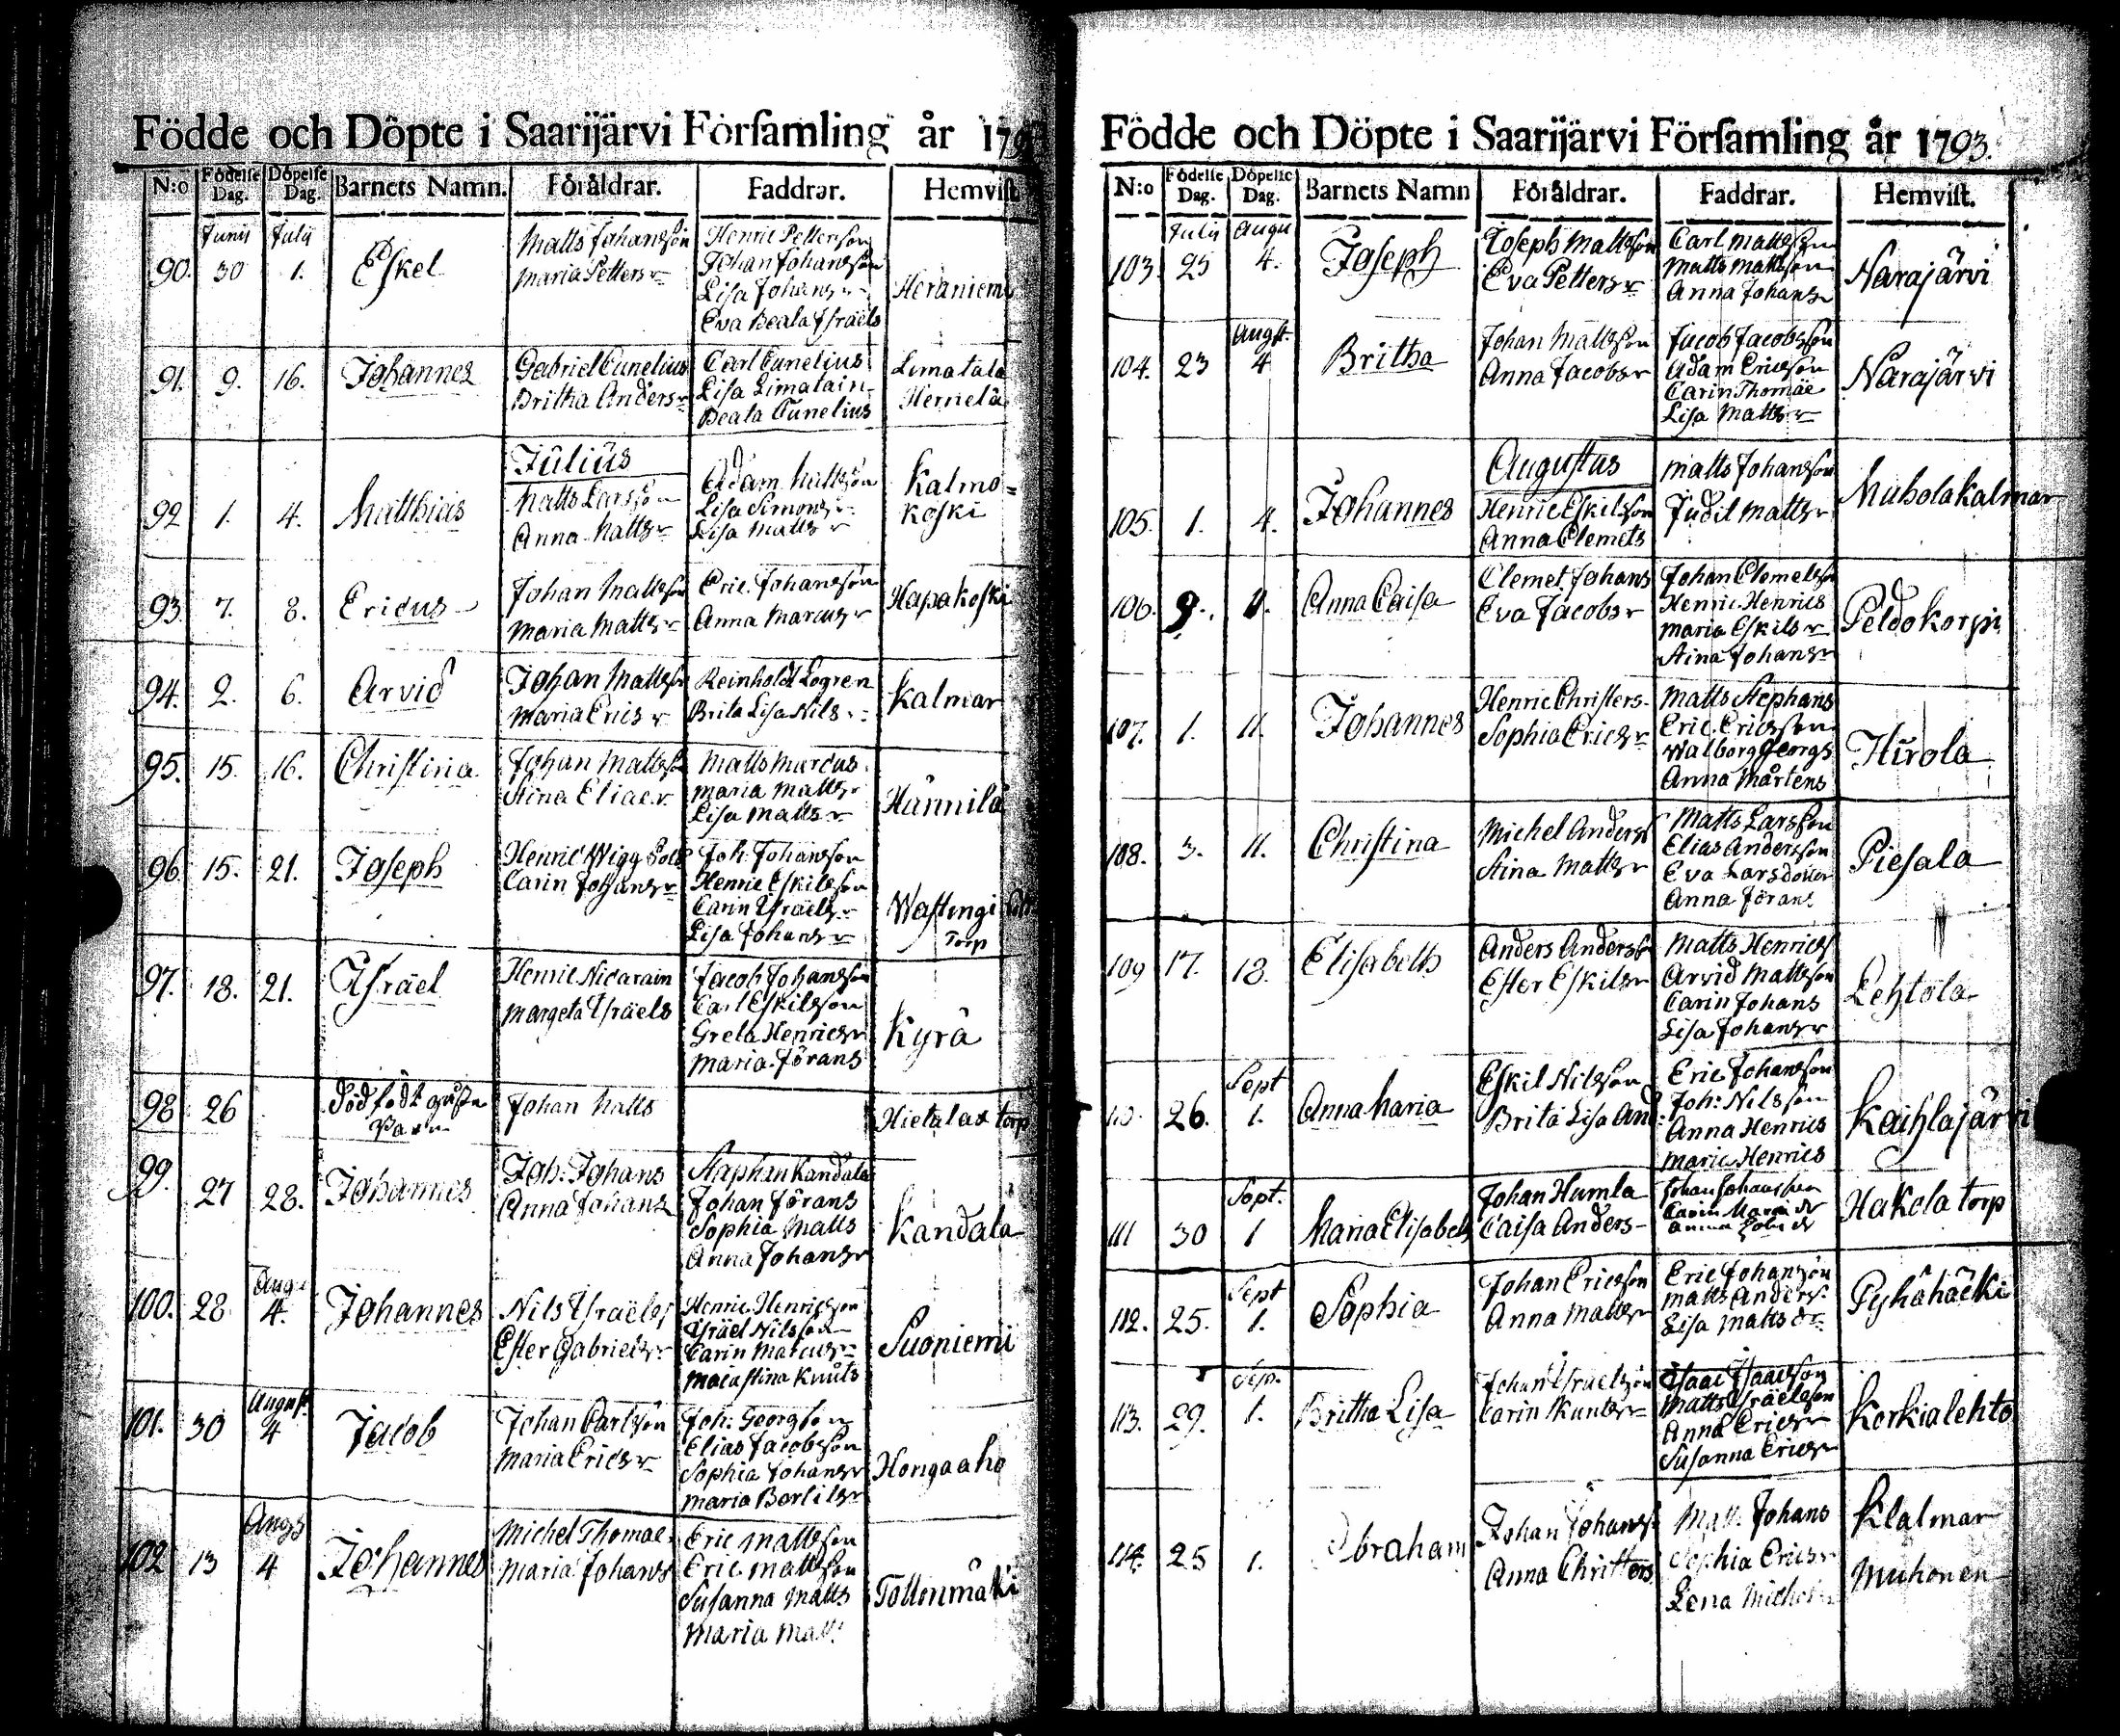 Födde och Döpte i Saarijärvi Församling år 179
N:o Födelse Dag. Döpelse Dag. Barnets Namn. Föräldrar. Faddrar. Hemvist
Junij Julij
90. 30 1. Eskel Matts Johansson Henric Pettersson
Maria Petters r Johan Johansson
Lisa Johans r Heraniemi
Eva Beata Israels
91. 9. 16. Johannes Gabriel Cunelius Carl Cunelius Limatala
Britha Anders r Lisa Limatain Hernelä
Beata Cunelius
Julius
92 1. 4. Matthias Matts Larsson Adam Mattsson Kalmo=
Anna Matts r Lisa Simons r koski
Lisa Matts r
93. 7. 8. Ericus Johan Mattsson Eric Johansson Hapakoski
Maria Matts r Anna Marcus r
94. 2. 6. Arvid Johan Mattsson Reinhold Logren Kalmar
Maria Erics r Brita Lisa Nils r
95. 15. 16. Christina Johan Mattss Matts Marcus Hännilä
Stina Eliae r Maria Matts r
Lisa Matts r
96 15. 21. Joseph Henric Wigg Sold Joh. Johansson Wastingi
Carin Johans r Henric Eskilsson Torp
Carin Israels r
Lisa Johans r
97. 18. 21. Israel Henric Nicarain Jacob Johansson Kyrä
Margeta Israels Carl Eskilsson
Greta Henrics r
Maria Jörans
98 26 Dödfödt Johan Matts Hietalax torp
99. 27 28. Johannes Joh. Johans Staphan Kandala Kandala
Anna Johans Johan Jörans
Sophia Matts
Anna Johans r
Aug.
100. 28 4. Johannes Nils Israels Henric Henricsson Suoniemi
Ester Gabriels r Israel Nilsson
Carin Marcus r
Maja Stina Knuts
August
101. 30 4 Jacob Johan Carlsson Joh. Georgson Hongaaho
Maria Erics r Elias Jacobsson
Sophia Johans r
Maria Bertils r
Augs
102 13 4 Johannes Michel Thomae Eric Mattsson Tottenmäki
Maria Johans Eric Mattsson
Susanna Matts
Maria Matt
Födde och Döpte i Saarijärvi Församling år 1793.
N:o Födelse Dag. Döpelse Dag. Barnets Namn Föräldrar. Faddrar. Hemvist.
Julij Augu
103. 25 4. Joseph Joseph Mattsson Carl Mattsson Narajärvi
Eva Petters r Matts Mattsson
Anna Johans r
Augst.
104. 23 4 Britha Johan Mattsson Jacob Jacobsson Narajärvi
Anna Jacobs r Adam Ericsson
Carin Thomäe
Lisa Matts r
Augustus
105. 1. 4. Johannes Henric Eskilsson Matts Johansson Muholakalmar
Anna Clemets Judit Matts r
106. 9. 11. Anna Caisa Clemet Johans Johan Clemetsson Peldokorpi
Eva Jacobs r Henric Henrics
Maria Eskils r
Stina Johans r
107. 1. 11. Johannes Henric Christers Matts Stephans Hirola
Sophia Erics r Eric Ericsson
Walborg Georgs
Anna Mårtens
108. 3. 11. Christina Michel Anderss Matts Larsson Piesala
Stina Matts r Elias Andersson
Eva Larsdotter
Anna Jörans
109 17. 18. Elisabeth Anders Andersson Matts Henrics Lehtola
Ester Eskils r Arvid Mattsson
Carin Johans
Lisa Johans r
Sept
110. 26. 1. Anna Maria Eskil Nilsson Eric Johansson Kaihlajärvi
Brita Lisa And. Joh: Nilsson
Anna Henrics
Maria Henrics
Sept.
111 30 1 Maria Elisabeth Johan Humla Johan Johansson Hakola torp
Caisa Anders Carin
Anna
Sept
112. 25. 1. Sophia Johan Ericsson Eric Johansson Pyhähäcki
Anna Matts r Matts Anders
Lisa Matts dr
Sep.
113. 29. 1. Britha Lisa Johan Israelsson Isaac Isaacsson Korkialehto
Carin Knuts r Matts Israelsson
Anna Erics r
Susanna Erics r
114. 25 1. Abraham Johan Johanss Matts Johans Klalmar
Anna Christers Sophia Erics r Muhonen
Lena Michels